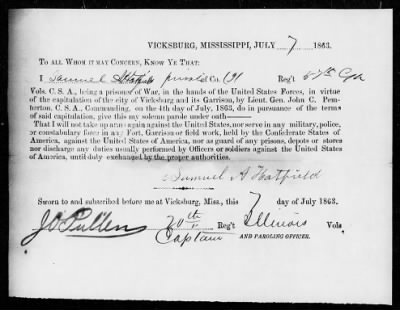 VICKSBURG, MISSISSIPPI, JULY 7 1863.
TO ALL WHOM IT MAY CONCERN, KNOW YE THAT:
I Samuel A Hatfield private Co. Reg't
Vols. C. S. A., being a prisoner of War, in the hands of the United States Forces, in virtue
of the capitulation of the city of Vicksburg and its Garrison, by Lieut. Gen. John C. Pem-
berton, C. S. A., Commanding, on the 4th day of July, 1863, do in pursuance of the terms
of said capitulation, give this my solemn parole under oath——
That I will not take up arms again against the United States, nor serve in any military, police,
or constabulary force in any Fort, Garrison or field work, held by the Confederate States of
America, against the United States of America, nor as guard of any prisons, depots or stores
nor discharge any duties usually performed by Officers or soldiers against the United States
of America, until duly exchanged by the proper authorities.
Samuel A Hatfield
Sworn to and subscribed before me at Vicksburg, Miss., this 7 day of July 1863.
J O Pullen 20th Reg't Illinois Vols
Captain AND PAROLING OFFICER.